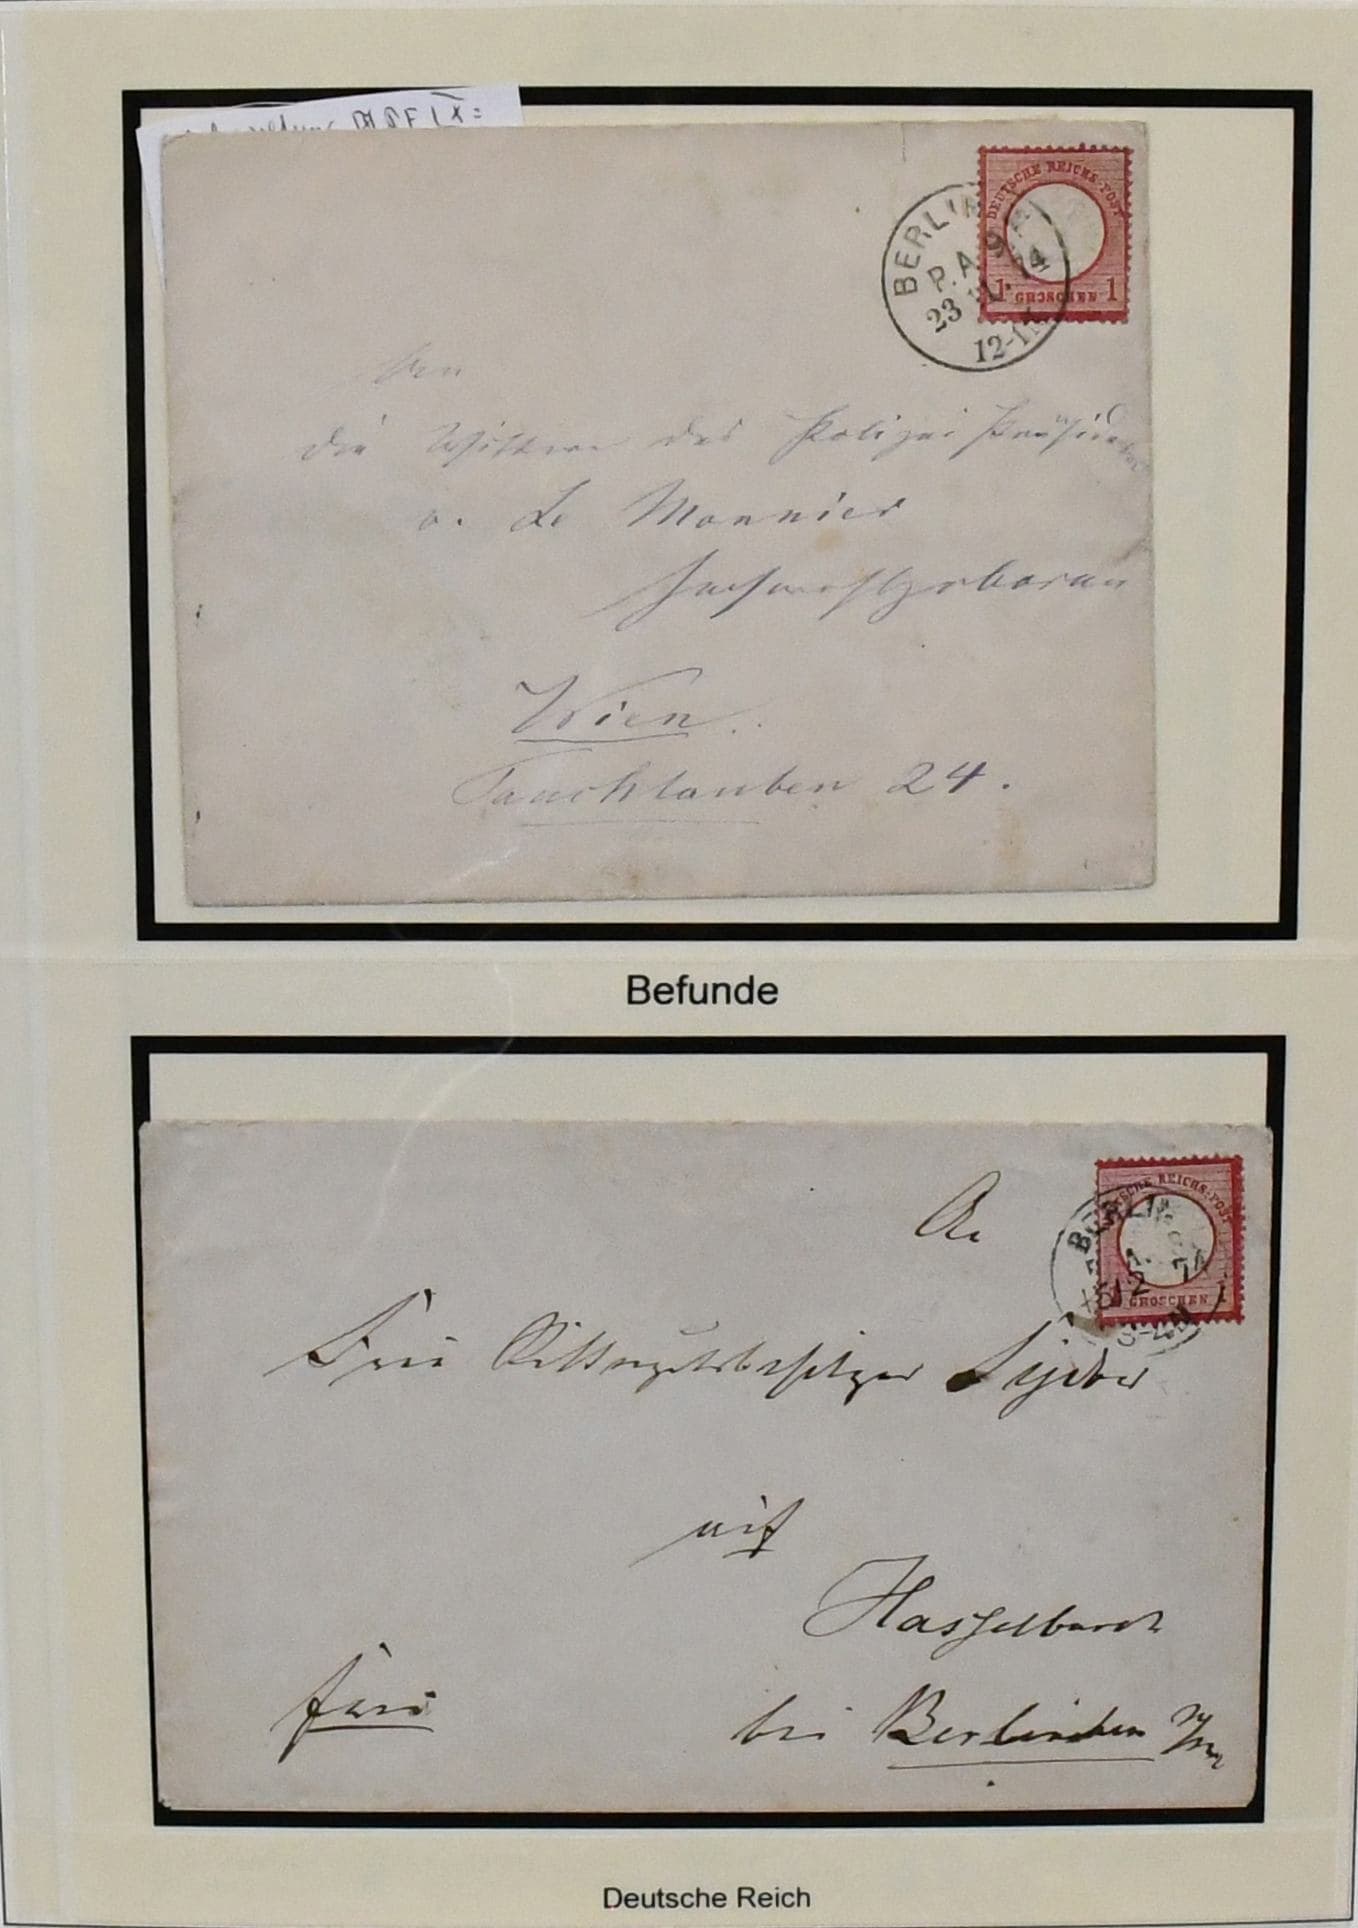 DEUTSCHE REICHS-POST
1 GROSCHEN 1
BERLIN
P.A. 9
12-1
die Wittwe des Polizei Präsidenten
v. Le Monnier
Hochwohlgeboren
Wien.
Tuchlauben 24.
Befunde
DEUTSCHE REICHS-POST
GROSCHEN
BERLIN
An
Frau Rittergutsbesitzer
auf
Hasselbusch
frei
bei Berlinchen N/M
Deutsche Reich